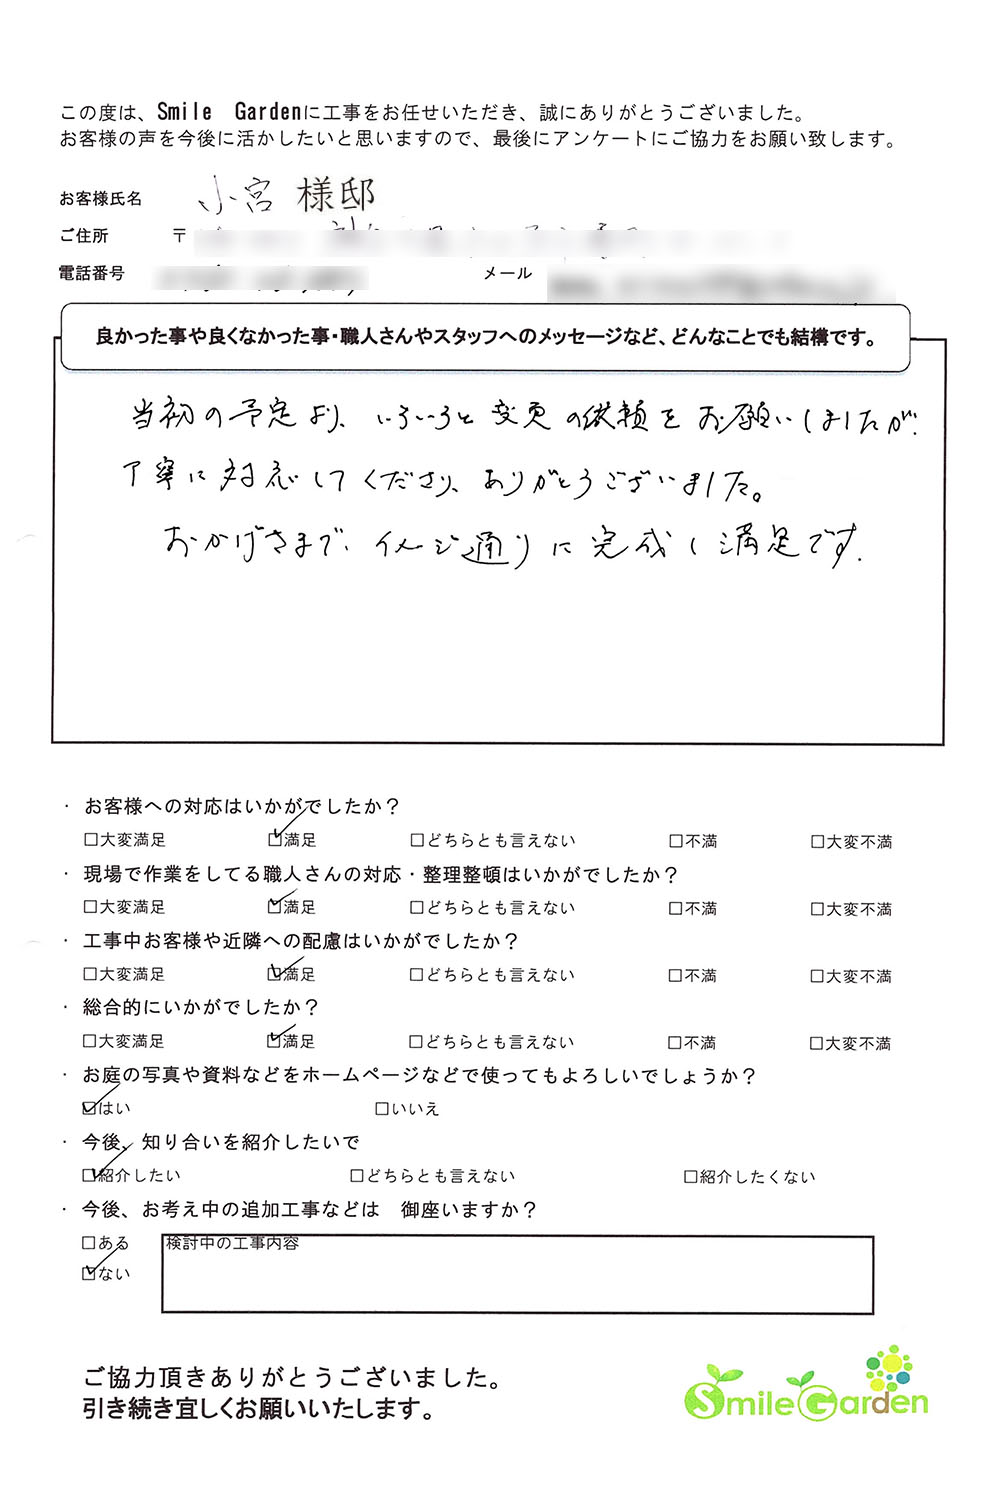 この度は、Smile Gardenに工事をお任せいただき、誠にありがとうございました。
お客様の声を今後に活かしたいと思いますので、最後にアンケートにご協力をお願い致します。
お客様氏名 小宮 様邸
ご住所 〒
電話番号 メール
良かった事や良くなかった事・職人さんやスタッフへのメッセージなど、どんなことでも結構です。
当初の予定より、いろいろと変更の依頼をお願いしましたが、
丁寧に対応してくださり、ありがとうございました。
おかげさまで、イメージ通りに完成し満足です。
・ お客様への対応はいかがでしたか？
□大変満足 ☑満足 □どちらとも言えない □不満 □大変不満
・ 現場で作業をしてる職人さんの対応・整理整頓はいかがでしたか？
□大変満足 ☑満足 □どちらとも言えない □不満 □大変不満
・ 工事中お客様や近隣への配慮はいかがでしたか？
□大変満足 ☑満足 □どちらとも言えない □不満 □大変不満
・ 総合的にいかがでしたか？
□大変満足 ☑満足 □どちらとも言えない □不満 □大変不満
・ お庭の写真や資料などをホームページなどで使ってもよろしいでしょうか？
☑はい □いいえ
・ 今後、知り合いを紹介したいで
☑紹介したい □どちらとも言えない □紹介したくない
・ 今後、お考え中の追加工事などは 御座いますか？
□ある 検討中の工事内容
☑ない
ご協力頂きありがとうございました。
引き続き宜しくお願いいたします。
Smile Garden